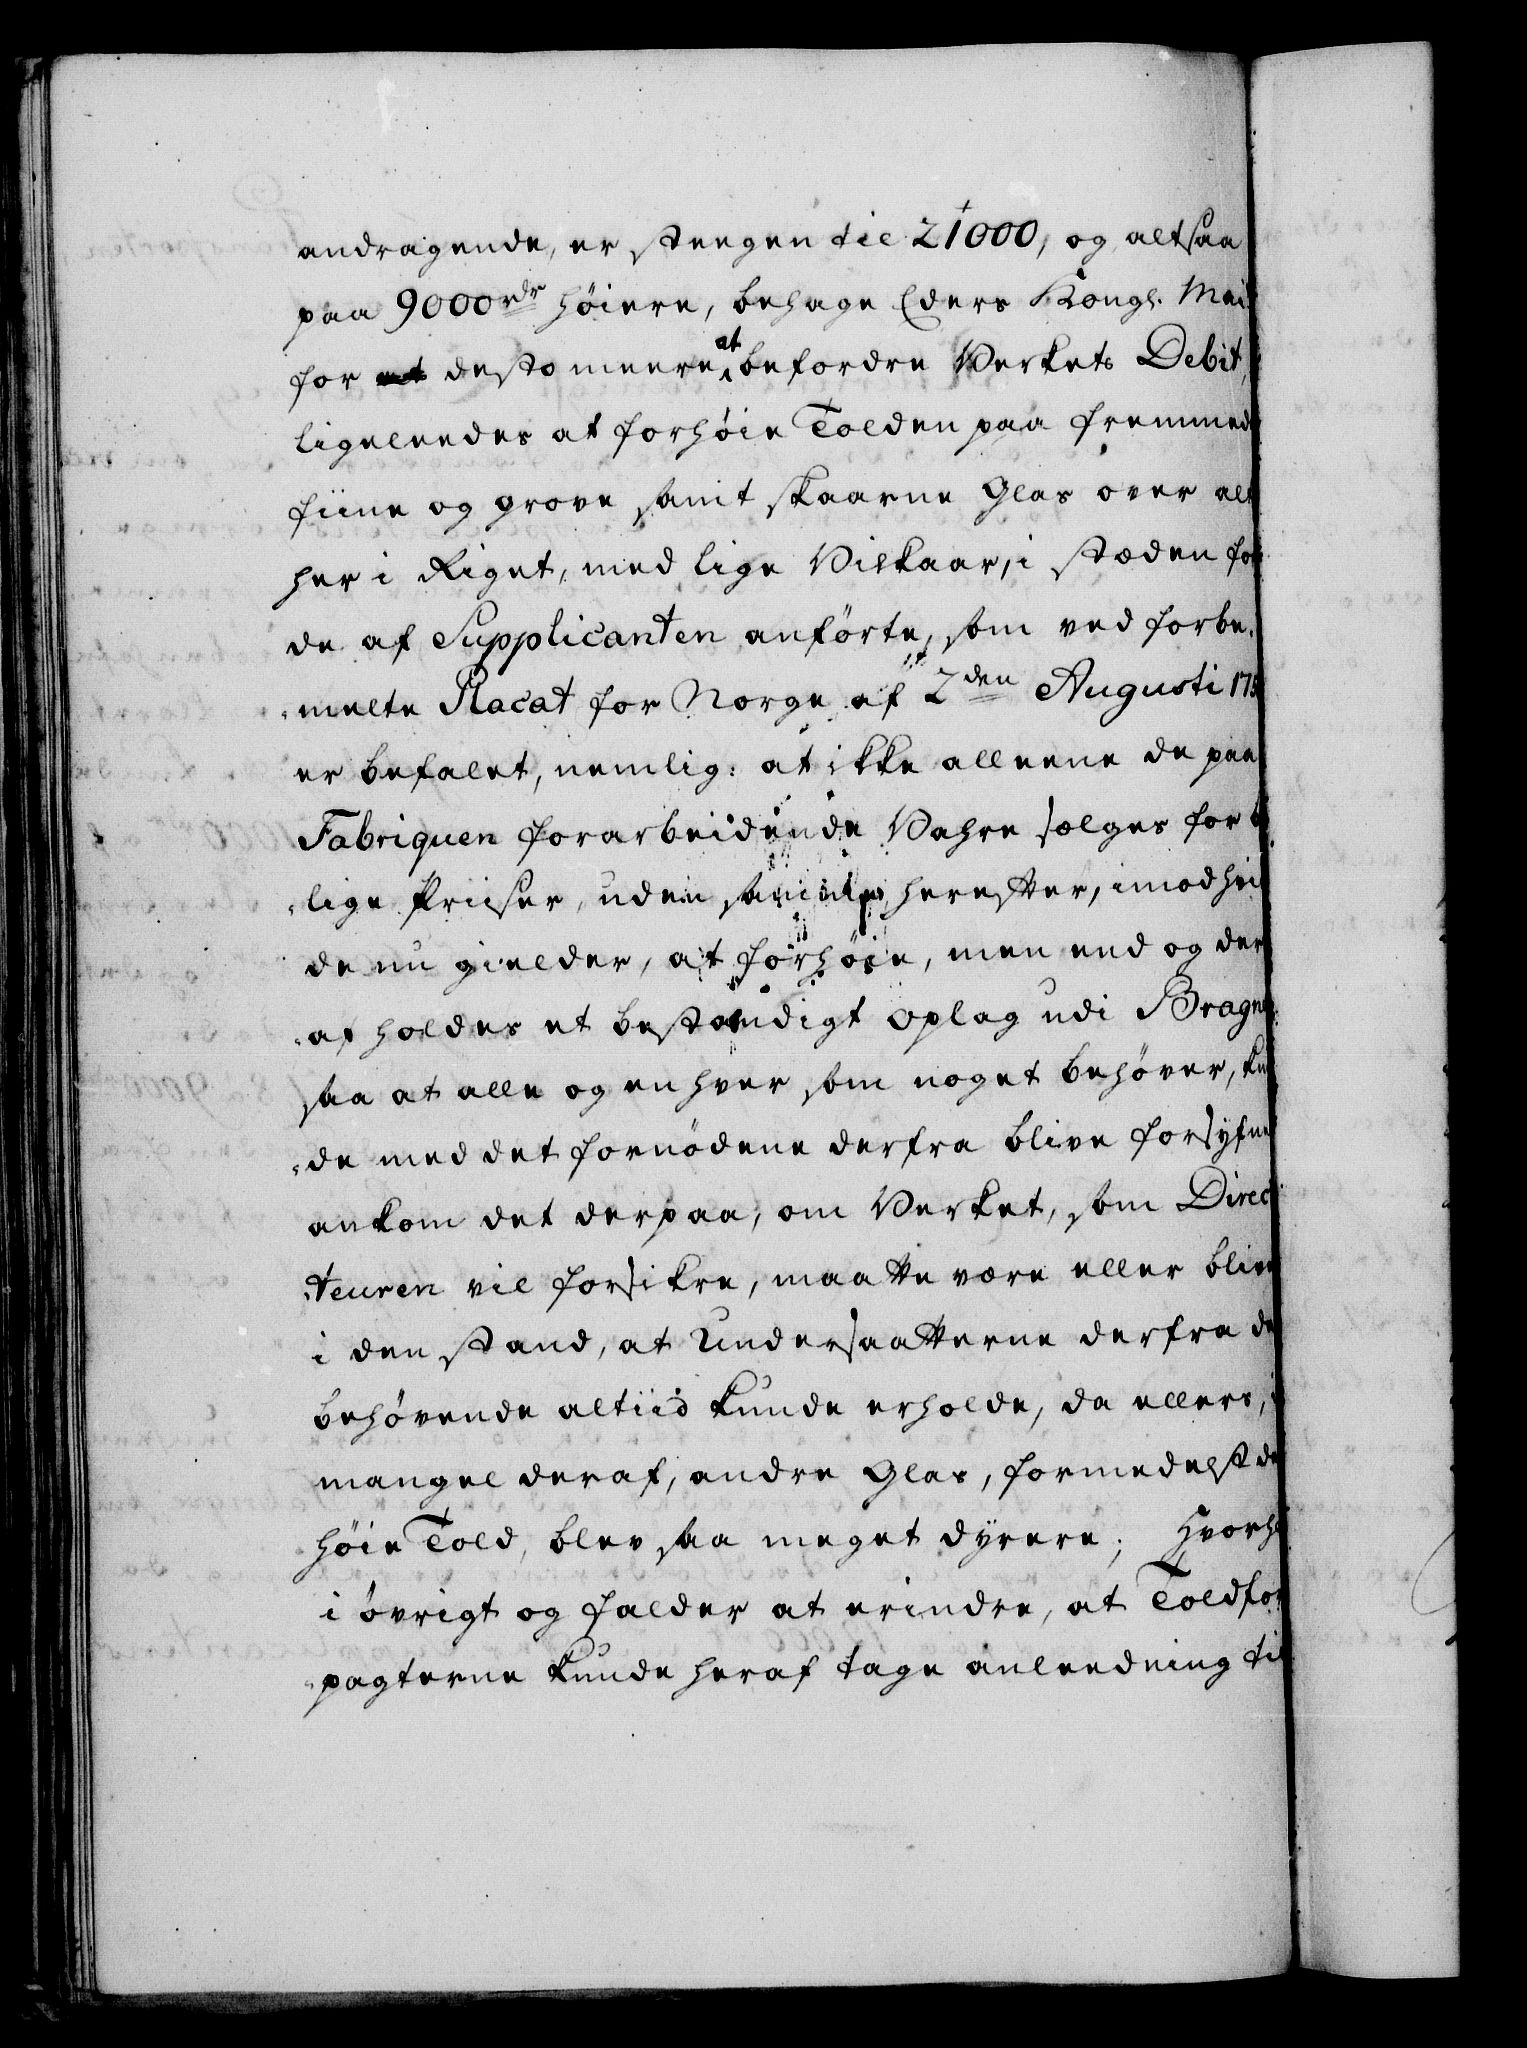 andragende, er steegen til 21000, og altsaa
paa 9000 rdr høiere, behage Eders Kongl. Mai
for at desto meere at befordre Verkets Debit,
ligeleedes at forhøie Tolden paa fremmed
fiine og grove samt skaarne Glas over alt
her i Riget, med lige Vilkaar, i stæden for
de af Supplicanten anførte, som ved forbe¬
melte Placat for Norge af 2den Augusti 175
er befalet, nemlig: at ikke alleene de paa
Fabriquen forarbeidende Vahre sælges for b
lige Priiser, uden samme herefter, imod hvi
de nu gielder, at forhøie, men end og der
af holdes et bestændigt Oplag udi Bragn
saa at alle og en hver som noget behøver, kun
de med det fornødene derfra blive forsyfne
ankom det derpaa, om Verket, som Direc
teuren vil forsikre, maatte være eller blive
i den stand, at Undersaatterne derfra de
behøvende altiid kunde erholde, da ellers, i
mangel deraf, andre Glas, formedelst de
høie Told, blev saa meget dyrere; Hvorh
i øvrigt og falder at erindre, at Toldfor
pagterne kunde heraf tage anleedning til